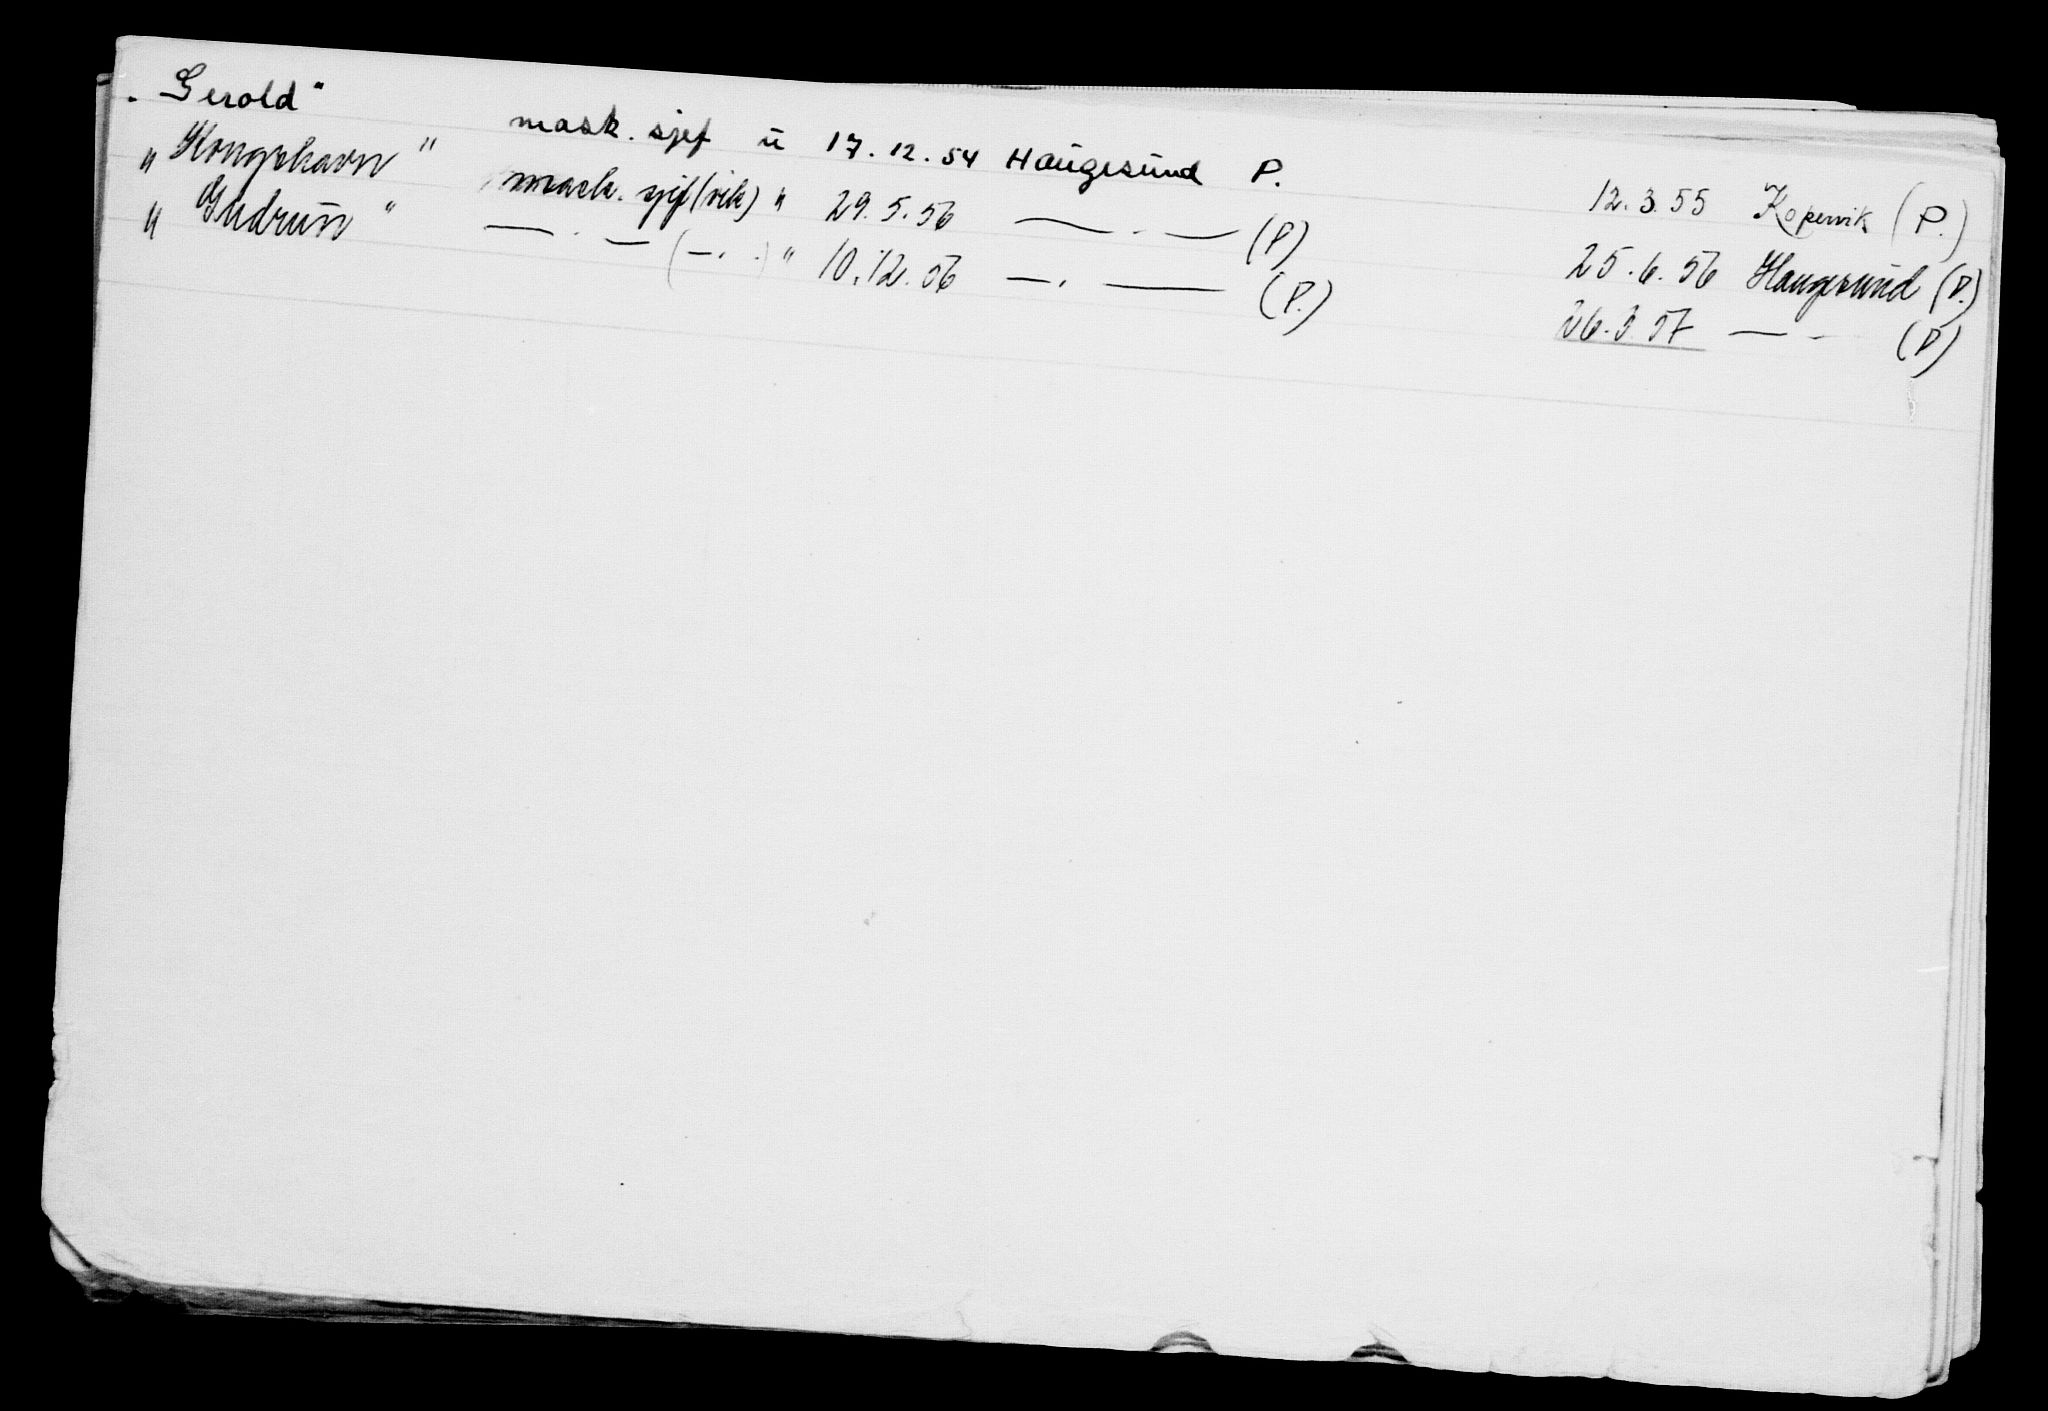 „ Gerold " mask. sjef u 17.12.54 Haugesund P. 12.3.55 Kopervik (P.)
„ Kongshavn " mask. sjef (vik) " 29.5.56 — . — (P) 25.6.56 Haugesund (P.)
„ Gudrun " — . — ( — . . ) " 10.12.56 — . — (P.) 26.3.57 — - (P)